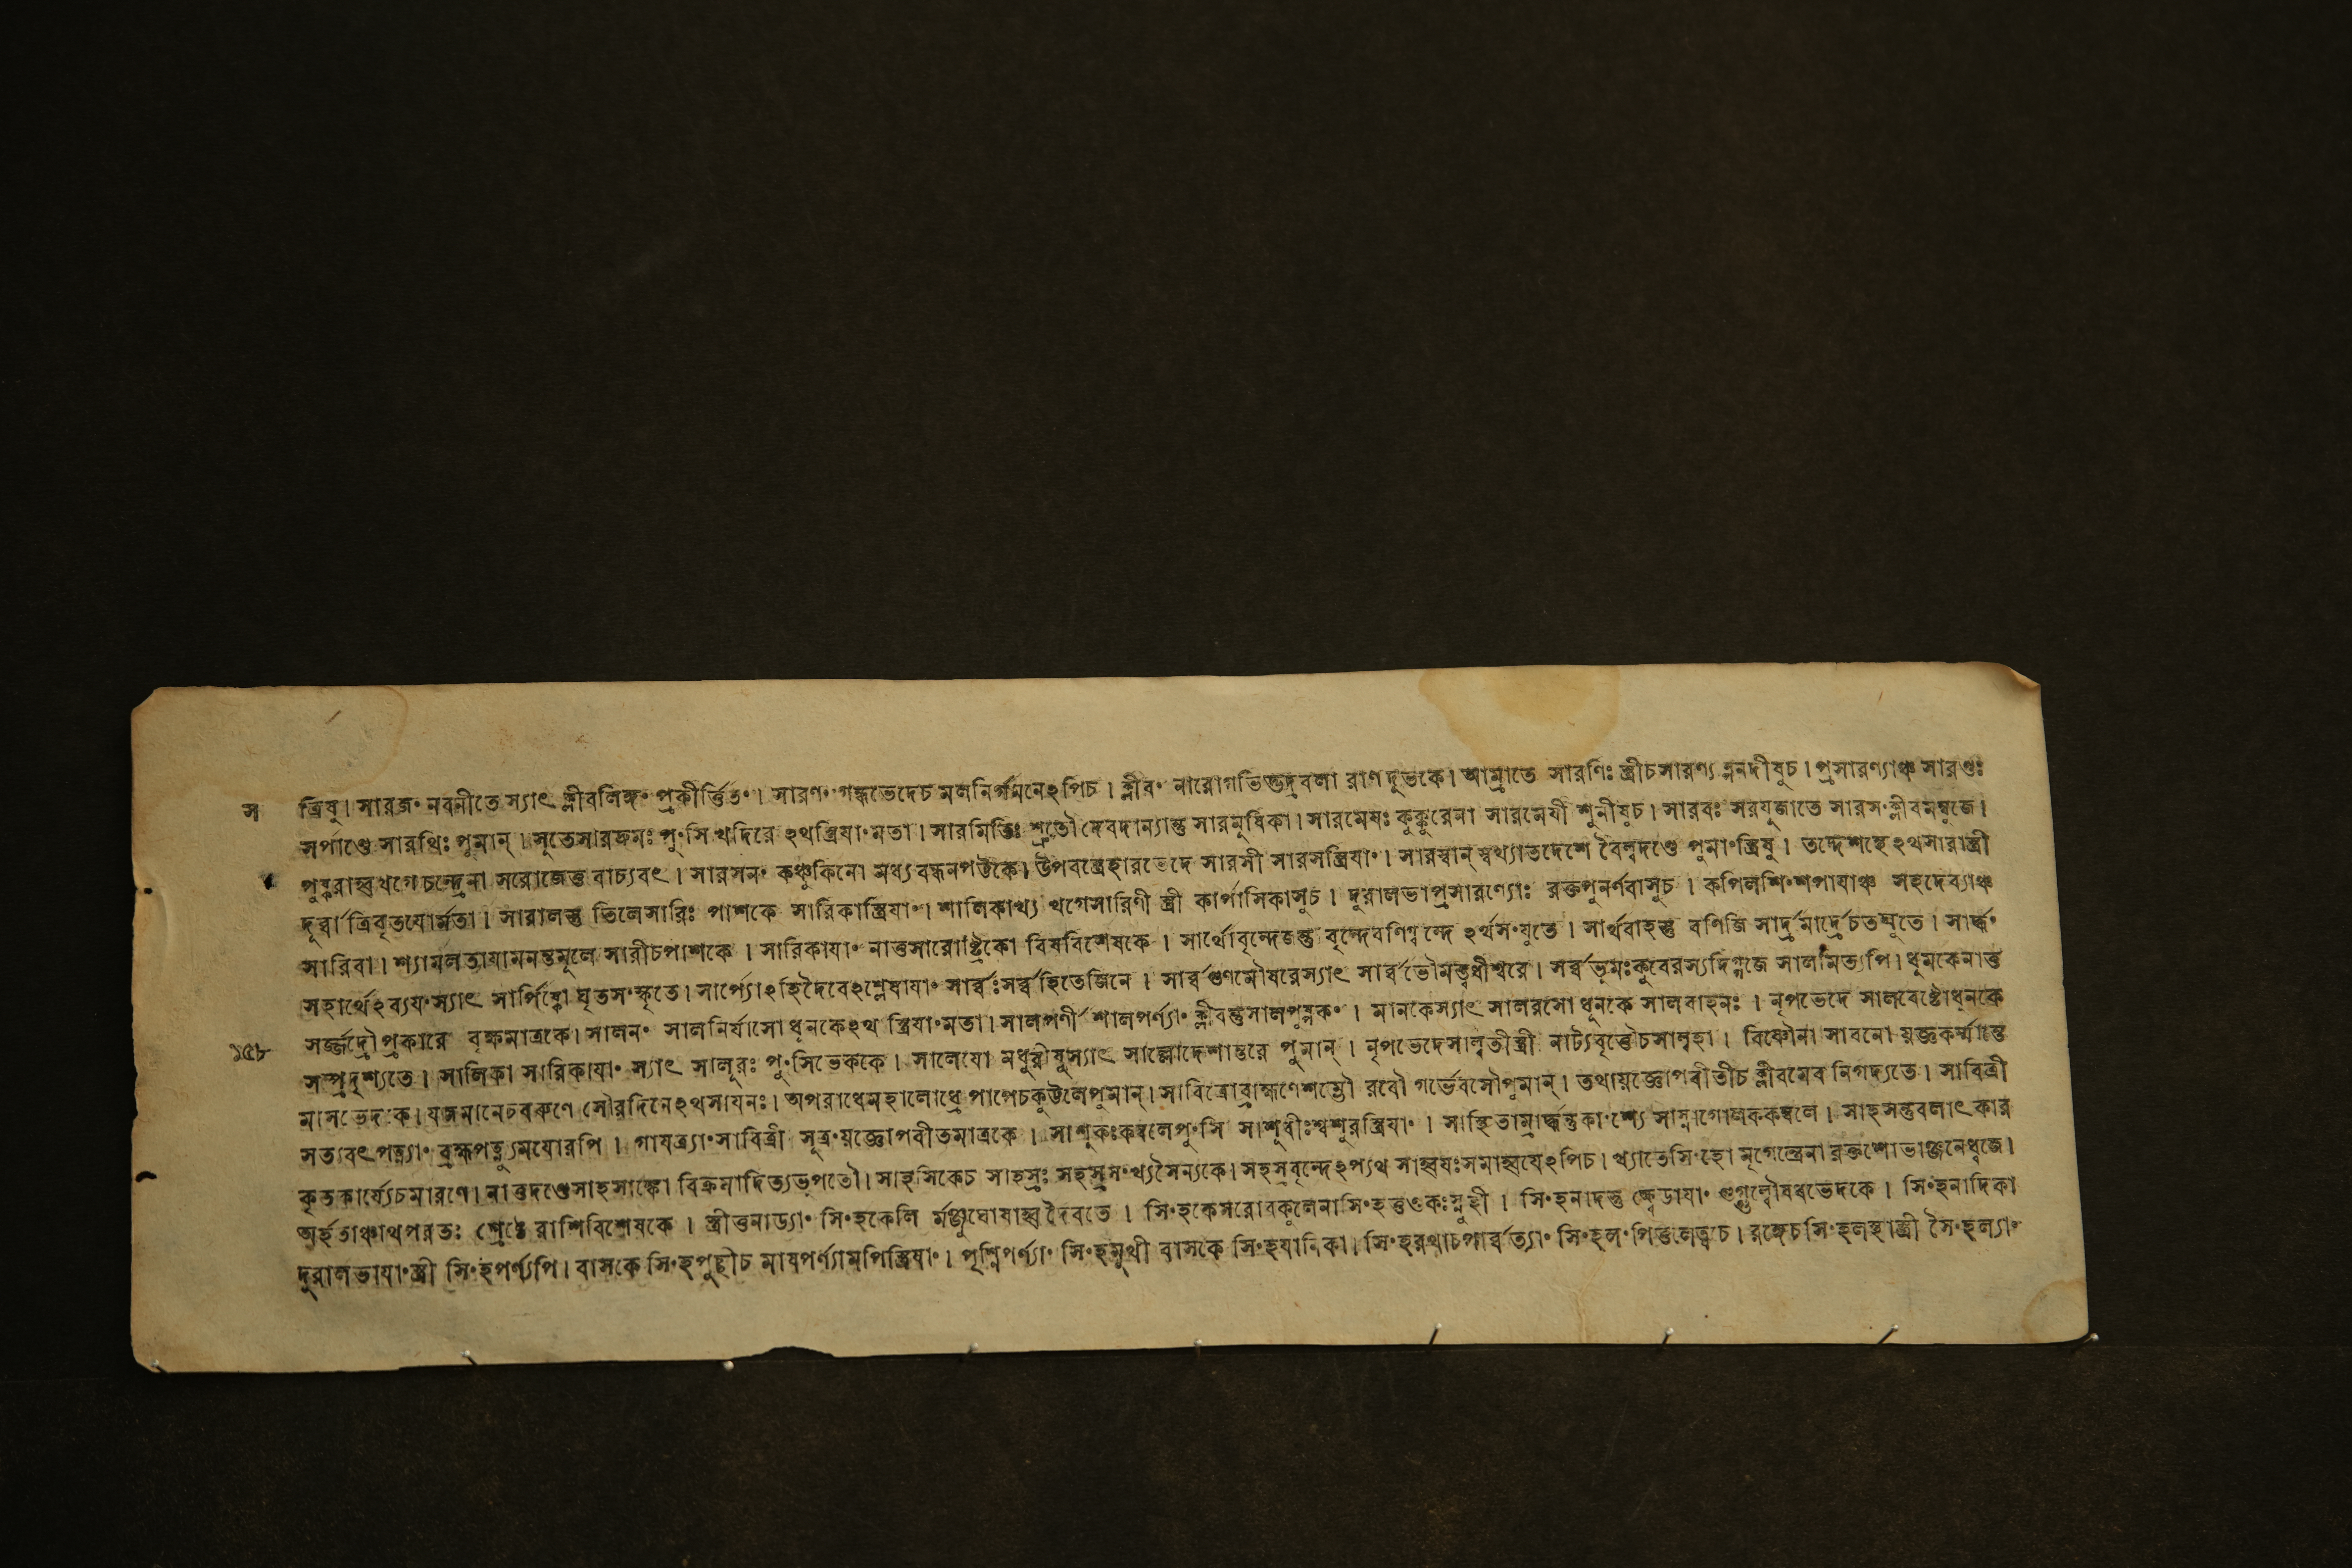 স ত্রিষু। সারজ॰ নবনীতে স্যাৎ ক্লীবলিঙ্গ॰ প্রকীর্ত্তিত॰। সারণ॰ গন্ধভেদেচ মলনির্গমনেঽপিচ। ক্লীব॰ নারোগভিত্তদ্রবলা রাণদুতকে। আম্রাতে সারণিঃ স্ত্রীচসারণ্য ল্পনদীষুচ। প্রসারণ্যাঞ্চ সারণ্ডঃ
সর্পাণ্ডে সারথিঃ পুমান্। সুতেসারদ্রুমঃ পু॰সি খদিরে ঽথস্ত্রিযা॰মতা। সারমিতিঃ শ্রুতৌ দেবদান্যান্তু সারমুষিকা। সারমেযঃ কুক্কুরেনা সারমেযী শুনীষুচ। সারবঃ সরযুজাতে সারস॰ক্লীবমম্বুজে।
পুষ্করাহ্বখগে চন্দ্রেনা সরোজেত্ত বাচ্যবৎ। সারসন॰ কঞ্চুকিনো মধ্যবন্ধনপট্টকে। উপবস্ত্রেহারভেদে সারসী সারসস্ত্রিযা॰। সারস্বান্ স্বখ্যাতদেশে বৈল্বদণ্ডে পুমা॰স্ত্রিষু। তদ্দেশহে ঽথসারাস্ত্রী
দূর্ব্বা ত্রিবৃতযোর্মতা। সারালস্তু তিলেসারিঃ পাশকে সারিকাস্ত্রিযা॰। শালিকাখ্য খগেসারিণী স্ত্রী কার্পাসিকাসুচ। দুরালভাপ্রসারণ্যোঃ রক্তপুনর্ণবাসুচ। কপিলশি॰শপাযাঞ্চ সহদেব্যাঞ্চ
সারিবা। শ্যামলতাযামনন্তমূলে সারীচপাশকে। সারিকাযা॰ নাত্তসারোষ্ট্রিকো বিষবিশেষকে। সার্থোবৃন্দেজন্তু বৃন্দেবণিগ্বৃন্দে ঽর্থস॰যুতে। সার্থবাহস্তু বণিজি সার্দ্রমার্দ্রেচতম্মতে। সার্দ্ধ॰
সহার্থেঽব্যয॰স্যাৎ সার্পিষ্কো ঘৃতস॰স্কৃতে। সার্প্যোঽহিদৈবেঽশ্লেষাযা॰ সার্ব্বঃসর্ব্বহিতেজিনে। সার্ব্বগুণমৌষরেস্যাৎ সার্ব্বভৌমস্ত্বধীশ্বরে। সর্ব্বভূমঃকুবেরস্যদিগ্গজে সালমিত্যপি। ধুমকেনাত্ত
সর্জ্জদ্রৌপ্রকারে বৃক্ষমাত্রকে। সালন॰ সালনির্যাসো ধূনকেঽথ স্ত্রিযা॰মতা। সালপর্ণী শালপর্ণ্যা॰ ক্লীবন্তুসালপুষ্পক॰। মানকেস্যাৎ সালরসো ধূনকে সালবাহনঃ। নৃপভেদে সালবেষ্টোধূনকে
১৫৮ সম্প্রদৃশ্যতে। সালিকা সারিকাযা॰ স্যাৎ সালূরঃ পু॰সিভেককে। সালেযো মধুরীষুস্যাৎ সাল্বোদেশান্তরে পুমান্। নৃপভেদেসাল্বতীস্ত্রী নাট্যবৃত্তৌচসাল্বহা। বিষ্ণৌনা সাবনো যজ্ঞকর্ম্মান্তে
মাসভেদকে। যজমানেচবরুণে সৌরদিনেঽথসাযনঃ। অপরাধেমহালোধ্রে পাপেচকুউলেপুমান্। সাবিত্রোব্রাহ্মণেশম্ভৌ রবৌ গর্ভেবসৌপুমান্। তথাযজ্ঞোপবীতীচ ক্লীবমেব নিগদ্যতে। সাবিত্রী
সত্যবৎপত্ন্যা॰ ব্রহ্মপত্ন্যুমযোরপি। গাযত্র্যা॰সাবিত্রী সূত্র॰যজ্ঞোপবীতমাত্রকে। সাশুকঃকম্বলেপু॰সি সাশুবীঃশ্বশুরস্ত্রিযা॰। সাহিতাম্রার্দ্ধন্তুকা॰শ্যে সাস্নাগোলককম্বলে। সাহসন্তুবলাৎকার
কৃতকার্য্যেচমারণে। নাত্তদণ্ডেসাহসাঙ্কো বিক্রমাদিত্যভূপতৌ। সাহসিকেচ সাহস্রঃ সহস্রস॰খ্যসৈন্যকে। সহস্রবৃন্দেঽপ্যথ সাহ্বযঃসমাহ্বযেঽপিচ। খ্যাতেসি॰হো মৃগেন্দ্রেনা রক্তশোভাঞ্জনেধ্বজে।
অর্হতাঞ্চাথপরতঃ শ্রেষ্ঠে রাশিবিশেষকে। স্ত্রীত্তনাড্যা॰ সি॰হকেলি র্মঞ্জুঘোষাহ্ব দৈবতে। সি॰হকেসরোবকুলেনাসি॰হতুণ্ডকঃস্নুহী। সি॰হনাদস্তু ক্ষ্বেডাযা॰ গুগ্গুল্বৌষধভেদকে। সি॰হনাদিকা
দুরালভাযা॰স্ত্রী সি॰হপর্ণ্যপি। বাসকে সি॰হপুছীচ মাষপর্ণ্যামপিস্ত্রিযা॰। পৃশ্নিপর্ণ্যা॰ সি॰হমুখী বাসকে সি॰হযানিকা। সি॰হরথাচপার্ব্বত্যা॰ সি॰হল॰পিত্তলেত্বচ। রঙ্গেচসি॰হলস্থাস্ত্রী সৈ॰হল্যা॰